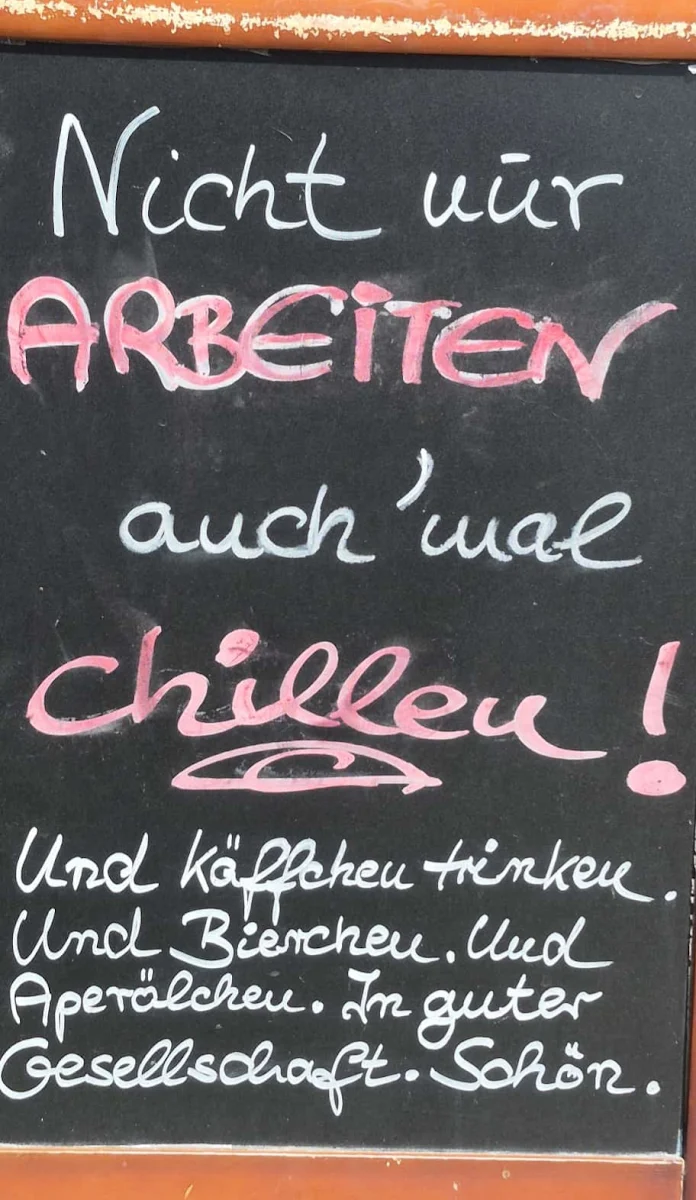 Nicht nur
ARBEiTEN
auch 'mal
chillen!
Und Käffchen trinken.
Und Bierchen. Und
Aperölchen. In guter
Gesellschaft. Schön.